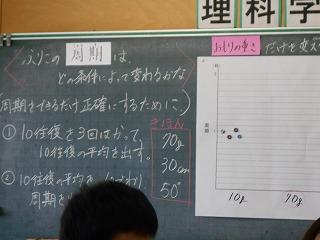 理科学
ふりこの 周期 は、
どの条件によって変わるのかな
(周期をできるだけ正確にするために、)
① 10往復を3回はかって、
10往復の平均を出す。
② 10往復の平均を
周期を
きほん
70g
30cm
50°
おもりの重さ だけを変え
周期
10g 70g